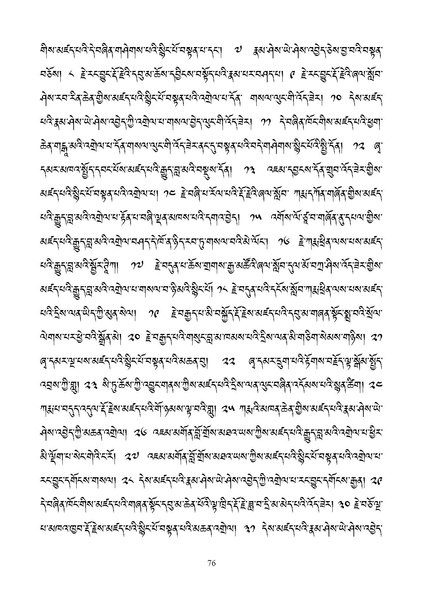 གིས་མཛད་པའི་དེ་བཞིན་གཤེགས་པའི་སྙིང་པོ་བསྟན་པ་དང་། ༧ རྣམ་ཤེས་ཡེ་ཤེས་འབྱེད་ཅེས་བྱ་བའི་བསྟན་
བཅོས། ༨ རྗེ་རང་བྱུང་རྡོ་རྗེའི་དབུ་མ་ཆོས་དབྱིངས་བསྟོད་པའི་རྣམ་པར་བཤད་པ། ༩ རྗེ་རང་བྱུང་རྡོ་རྗེའི་ཞལ་སློབ་
ཤེས་རབ་རིན་ཆེན་གྱིས་མཛད་པའི་སྙིང་པོ་བསྟན་པའི་འགྲེལ་པ་དོན་ གསལ་ལུང་གི་འོད་ཟེར། ༡༠ དེས་མཛད་
པའི་རྣམ་ཤེས་ཡེ་ཤེས་འབྱེད་ཀྱི་འགྲེལ་པ་གསལ་བྱེད་ལུང་གི་འོད་ཟེར། ༡༡ དེ་བཞིན་ཁོང་གིས་མཛད་པའི་ཕྱག་
ཆེན་གངྒཱ་མའི་འགྲེལ་པ་དོན་གསལ་ལུང་གི་འོད་ཟེར་ནང་དུ་བསྟན་པའི་བདེ་གཤེགས་སྙིང་པོའི་སྤྱི་དོན། ༡༢ ཞྭ་
དམར་མཁའ་སྤྱོད་དབང་པོས་མཛད་པའི་རྒྱུད་བླ་མའི་བསྡུས་དོན། ༡༣ འཇམ་དབྱངས་དོན་གྲུབ་འོད་ཟེར་གྱིས་
མཛད་པའི་སྙིང་པོ་བསྟན་པའི་འགྲེལ་པ། ༡༤ རྗེ་བཞི་པ་རོལ་པའི་རྡོ་རྗེའི་ཞལ་སློབ་ ཀརྨ་དཀོན་གཞོན་གྱིས་མཛད་
པའི་རྒྱུད་བླ་མའི་འགྲེལ་པ་རྟོན་པ་བཞི་ལྡན་མཁས་པའི་དགའ་བྱེད། ༡༥ འགོས་ལོ་ཙཱ་བ་གཞོན་ནུ་དཔལ་གྱིས་
མཛད་པའི་རྒྱུད་བླ་མའི་འགྲེལ་བཤད་དེ་ཁོ་ན་ཉིད་རབ་ཏུ་གསལ་བའི་མེ་ལོང་། ༡༦ རྗེ་ཀརྨ་ཕྲིན་ལས་པས་མཛད་
པའི་རྒྱུད་བླ་མའི་སྦྱོར་ཊཱིཀ། ༡༧ རྗེ་བདུན་པ་ཆོས་གྲགས་རྒྱ་མཚོའི་ཞལ་སློབ་དུལ་མོ་བཀྲ་ཤིས་འོད་ཟེར་གྱིས་
མཛད་པའི་རྒྱུད་བླ་མའི་འགྲེལ་པ་གསལ་བ་ཉི་མའི་སྙིང་པོ། ༡༨ རྗེ་བདུན་པའི་དངོས་སློབ་ཀརྨ་ཕྲིན་ལས་པས་མཛད་
པའི་དྲིས་ལན་ཡིད་ཀྱི་མུན་སེལ། ༡༩ རྗེ་བརྒྱད་པ་མི་བསྐྱོད་རྡོ་རྗེས་མཛད་པའི་དབུ་མ་གཞན་སྟོང་སྨྲ་བའི་སྲོལ་
ལེགས་པར་ཕྱེ་བའི་སྒྲོན་མེ། ༢༠ རྗེ་བརྒྱད་པའི་གསུང་བླ་མ་ཁམས་པའི་དྲིས་ལན་མི་གཅིག་སེམས་གཉིས། ༢༡
ཞྭ་དམར་ལྔ་པས་མཛད་པའི་སྙིང་པོ་བསྟན་པའི་མཆན་བུ། ༢༢ ཞྭ་དམར་དྲུག་པའི་རྟོགས་བརྗོད་ལྟ་སྒོམ་སྤྱོད་
འབྲས་ཀྱི་གླུ། ༢༣ སི་ཏུ་ཆོས་ཀྱི་འབྱུང་གནས་ཀྱིས་མཛད་པའི་དྲིས་ལན་ལུང་བཞིན་འདོམས་པའི་སྙན་ཚིག །༢༤
ཀརྨ་པ་བདུད་འདུལ་རྡོ་རྗེས་མཛད་པའི་གོ་ཉམས་ལྟ་བའི་གླུ། ༢༥ ཀརྨའི་མཁན་ཆེན་གྱིས་མཛད་པའི་རྣམ་ཤེས་ཡེ་
ཤེས་འབྱེད་ཀྱི་མཆན་འགྲེལ། ༢༦ འཇམ་མགོན་བློ་གྲོས་མཐའ་ཡས་ཀྱིས་མཛད་པའི་རྒྱུད་བླ་མའི་འགྲེལ་པ་ཕྱིར་
མི་ལྡོག་པ་སེང་གེའི་ང་རོ། ༢༧ འཇམ་མགོན་བློ་གྲོས་མཐའ་ཡས་ཀྱིས་མཛད་པའི་སྙིང་པོ་བསྟན་པའི་འགྲེལ་པ་
རང་བྱུང་དགོངས་གསལ། ༢༨ དེས་མཛད་པའི་རྣམ་ཤེས་ཡེ་ཤེས་འབྱེད་ཀྱི་འགྲེལ་པ་རང་བྱུང་དགོངས་རྒྱན། ༢༩
དེ་བཞིན་ཁོང་གིས་མཛད་པའི་གཞན་སྟོང་དབུ་མ་ཆེན་པོའི་ལྟ་ཁྲིད་རྡོ་རྗེ་ཟླ་བ་དྲི་མ་མེད་པའི་འོད་ཟེར། ༣༠ རྗེ་བཅོ་ལྔ་
པ་མཁའ་ཁྱབ་རྡོ་རྗེས་མཛད་པའི་སྙིང་པོ་བསྟན་པའི་མཆན་འགྲེལ། ༣༡ དེས་མཛད་པའི་རྣམ་ཤེས་ཡེ་ཤེས་འབྱེད་
76